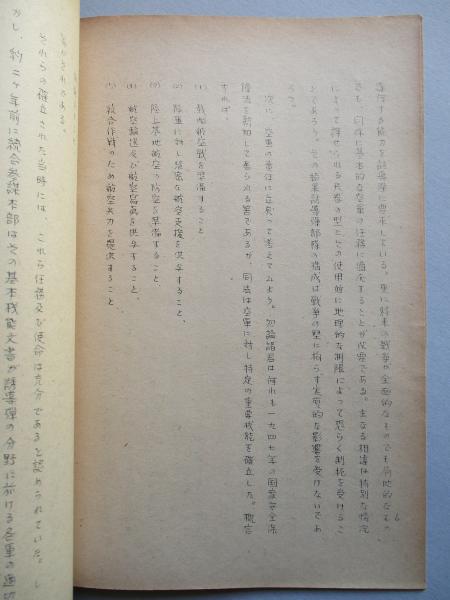 6
専行する能力を誘導弾に要求している。更に将来の戦争が全面的なものでも局地的なもの
でも、同様に基本的な空軍の任務に適応することが必要である。主なる相違は特別な情況
によって課せられる兵器の型とその使用計に地理的な制限によって恐らく制抗を受けるこ
とであろう。その結果誘導弾部隊の構成は戦争の型に拘らず実質的な影響を受けないであ
ろう。
次に、空軍の責任に立戻って考えてみよう。勿論諸君は何れも一九四七年の国家安全保
障法を熟知して居られる筈であるが、同法は空軍に対し特定の重要機能を確立した。概言
すれば、
(1) 戦略航空戦を準備すること
(2) 陸軍に対し緊密な航空支援を供与すること、
(3) 陸上基地航空の防空を準備すること
(4) 航空輸送及び航空写真を供与すること、
(5) 統合作戦のため航空兵力を提供すること
されている。
それらの確立された当時には、これら任務及び使命は充分であると認められていた。し
かし、約二ヶ年前に統合参謀本部はその基本機能文書が誘導弾の分野に於ける各軍の適切